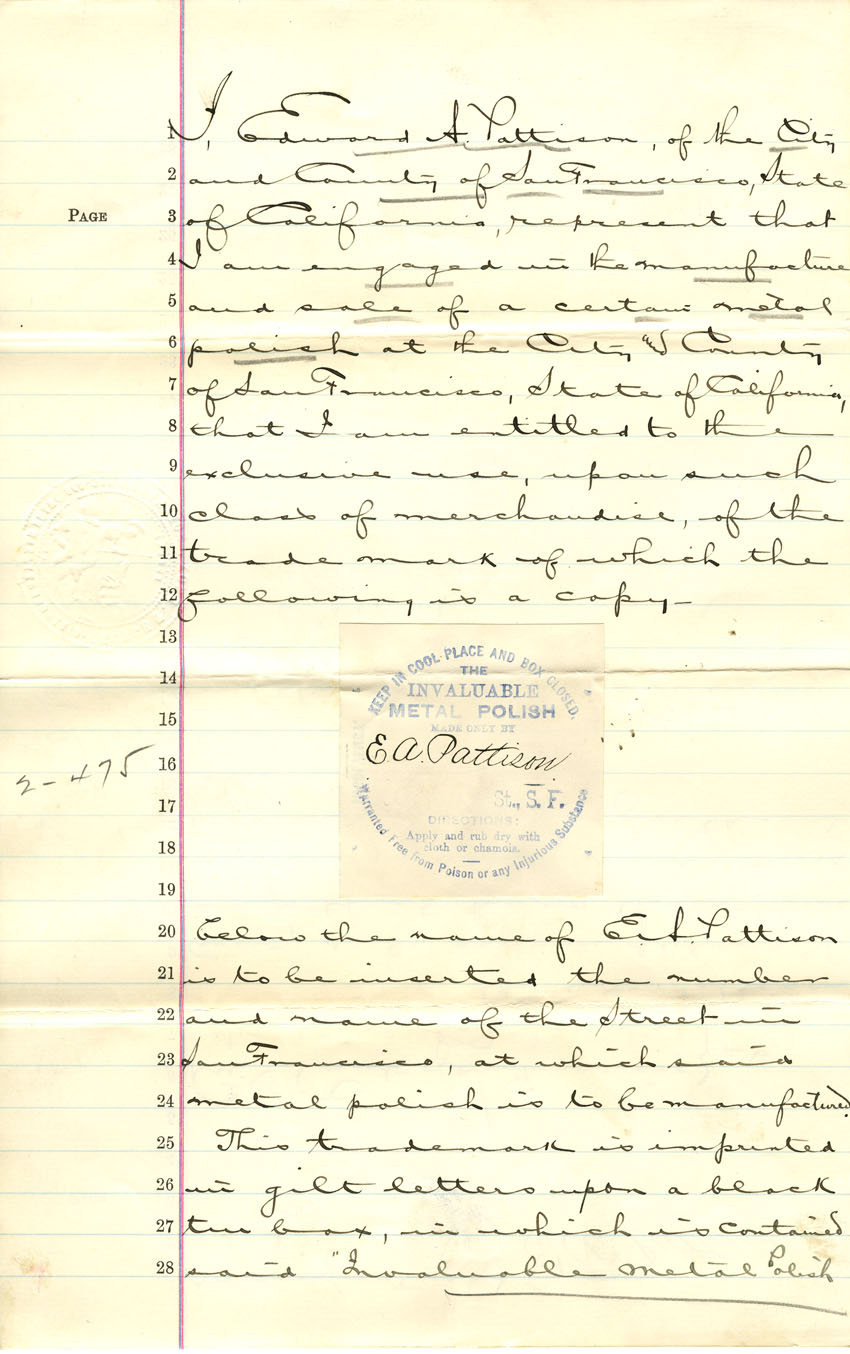 1 I, Edward A. Pattison, of the City
2 and County of San Francisco, State
PAGE 3 of California, represent that
4 I am engaged in the manufacture
5 and sale of a certain metal
6 polish at the City and County
7 of San Francisco, State of California,
8 that I am entitled to the
9 exclusive use, upon such
10 class of merchandise, of the
11 trade mark of which the
12 following is a copy—
13
KEEP IN COOL PLACE AND BOX CLOSED.
14 THE
INVALUABLE
METAL POLISH
15 MADE ONLY BY
16 E. A. Pattison
2-475
17 St., S. F.
DIRECTIONS:
18 Apply and rub dry with
cloth or chamois.
Warranted Free from Poison or any Injurious Substance
19
20 below the name of E. A. Pattison
21 is to be inserted the number
22 and name of the Street in
23 San Francisco, at which said
24 metal polish is to be manufactured.
25 This trademark is imprinted
26 in gilt letters upon a black
27 tin box, in which is contained
28 said "Invaluable Metal Polish